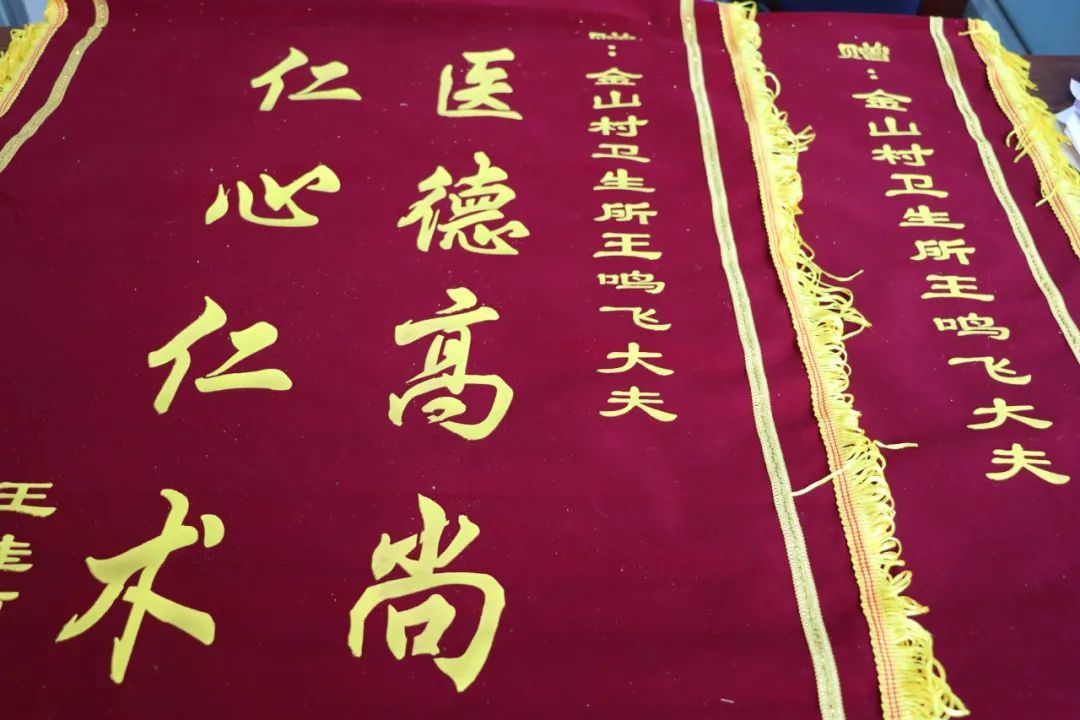 赠：金山村卫生所王鸣飞大夫
赠：金山村卫生所王鸣飞大夫
医德高尚
仁心仁术
王佳